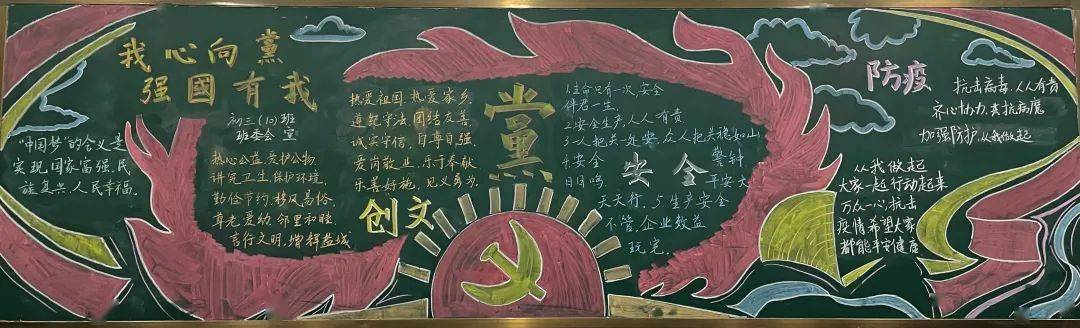 我心向黨
强國有我
初三(10)班
班委会 宣
“中国梦”的含义是
实现国家富强、民
族复兴、人民幸福。
热爱祖国,热爱家乡,
遵纪守法,团结友善,
诚实守信,自尊自强,
爱岗敬业,乐于奉献
乐善好施,见义勇为,
热心公益,爱护公物
讲究卫生,保护环境,
勤俭节约,移风易俗,
尊老爱幼,邻里和睦
言行文明,增辉盐城
创文
黨
安全
1.生命只有一次,安全
伴君一生
2.安全生产,人人有责
3.一人把关一处安,众人把关稳如山
4.安全 警钟
日日鸣, 平安大
道天天行. 5.生产安全
不管,企业效益
玩完.
防疫
抗击病毒,人人有责
齐心协力,共抗病魔
加强防护,从我做起
从我做起
大家一起行动起来
万众一心,抗击
疫情,希望大家
都能平安健康